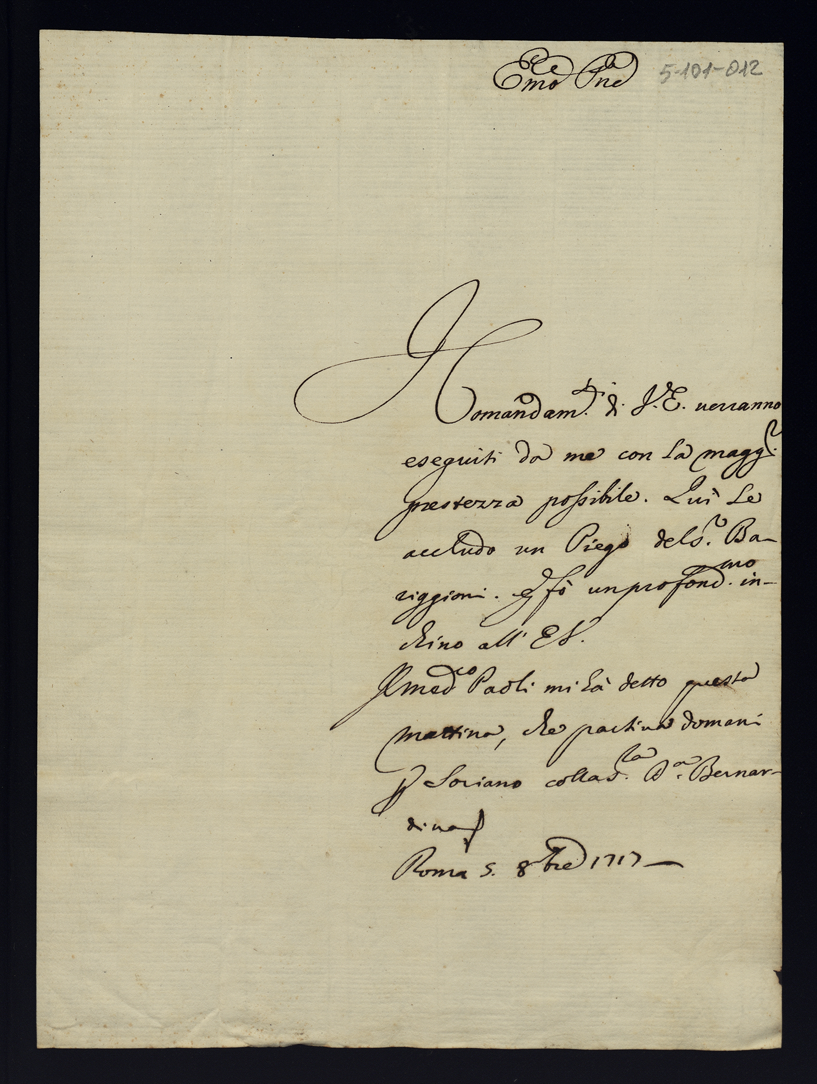 Emo Pne
5-101-012
I Comandam.ti di V.E. verranno
eseguiti da me con la magg.r
prestezza possibile. Qui le
accludo un Piego del S.r Ba-
riggioni. E fò un profond.mo in-
chino all' E.V.
Il med.co Paoli mi hà detto questa
mattina, che partiva domani
p Soriano colla S.ra D.a Bernar-
dina
Roma 5. 8bre 1717